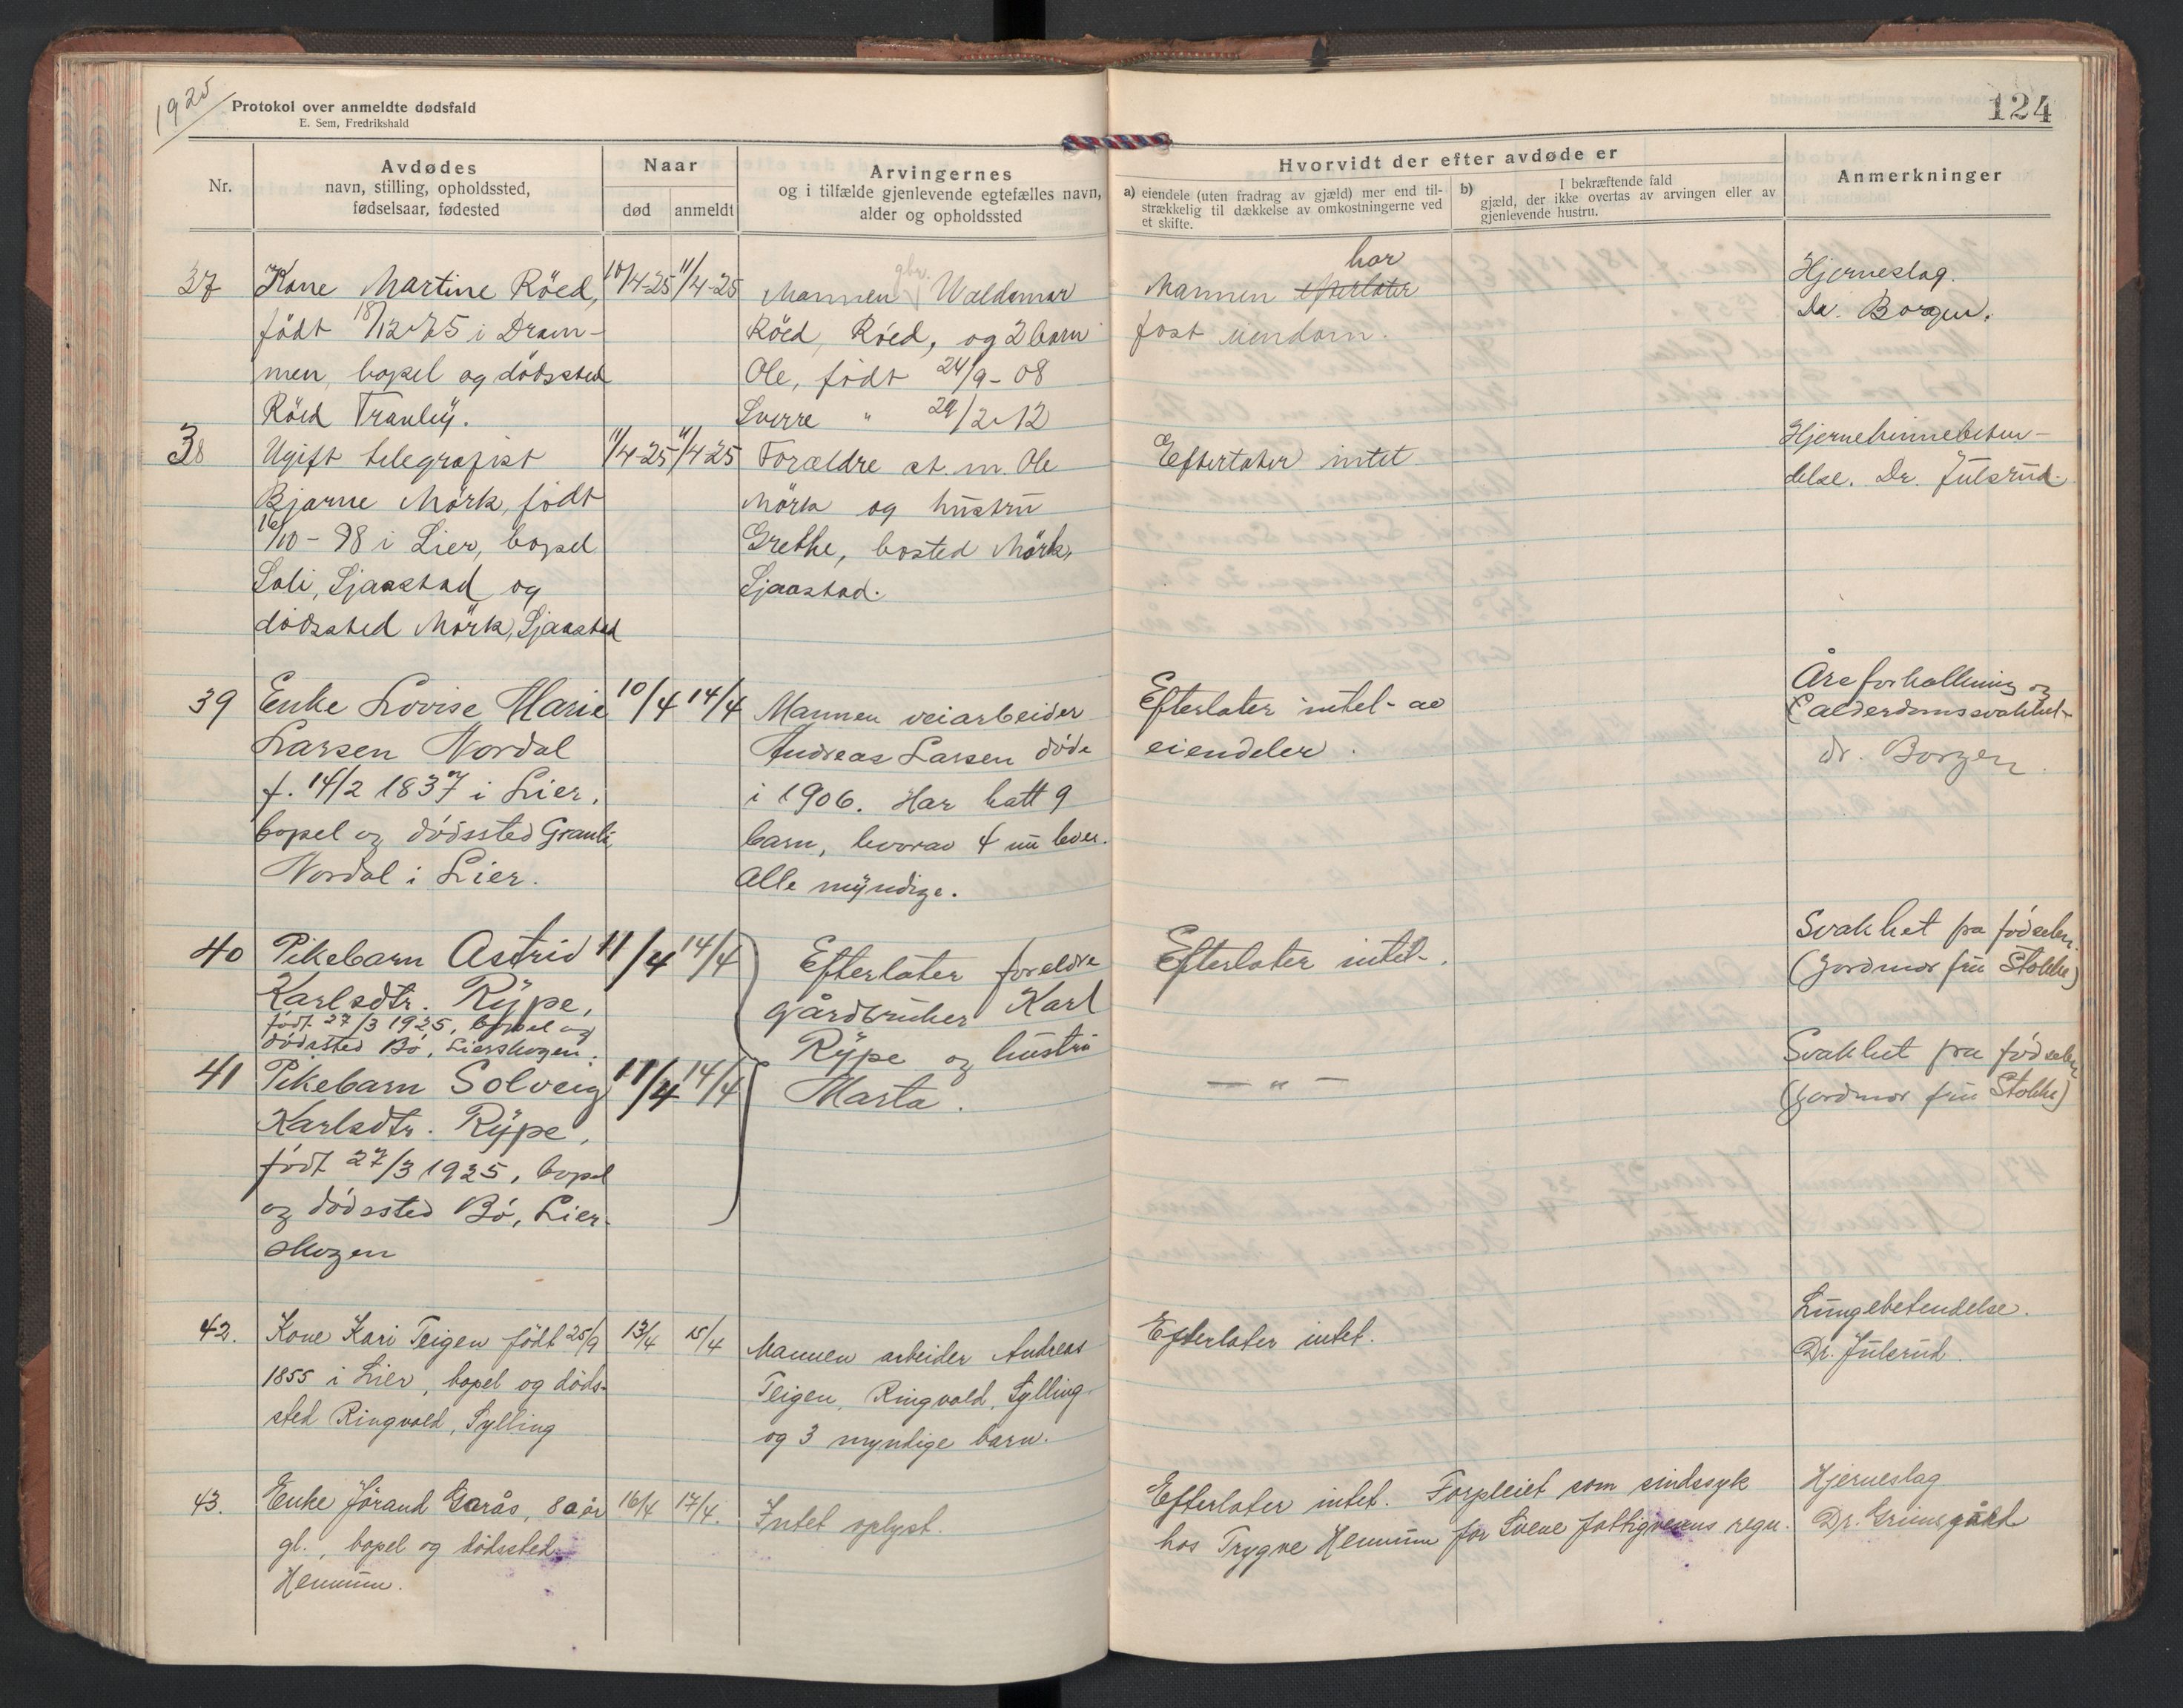 1925
Protokol over anmeldte dødsfald
E. Sem, Fredrikshald
124
Nr.
Avdødes
navn, stilling, opholdssted,
fødselsaar, fødested
Naar
død
anmeldt
Arvingernes
og i tilfælde gjenlevende egtefælles navn,
alder og opholdssted
Hvorvidt der efter avdøde er
a) eiendele (uten fradrag av gjæld) mer end til-
strækkelig til dækkelse av omkostningerne ved
et skifte.
b) I bekræftende fald
gjæld, der ikke overtas av arvingen eller av
gjenlevende hustru.
Anmerkninger
37
Kone Martine Röed,
født 18/12-75 i Dram-
men, bopel og dödssted
Röed Tranby.
10/4-25
11/4-25
gbr.
Mannen Waldemar
Röed, Röed, og 2 barn
Ole, født 24/9-08
Sverre " 29/2-12
har
Mannen efterlater
fast eiendom.
Hjerneslag.
Dr. Borgen.
38
Ugift telegrafist
Bjarne Mörk, født
16/10-98 i Lier, bopel
Soli, Sjaastad og
dödssted Mörk, Sjaastad
11/4-25
11/4-25
Forældre st. m. Ole
Mörk og hustru
Grethe, bosted Mörk,
Sjaastad.
Efterlater intet
Hjernehinnebeten-
delse. Dr. Julsrud.
39
Enke Lovise Marie
Larsen Nordal
f. 14/2 1837 i Lier,
bopel og dødssted Granli,
Nordal i Lier.
10/4
14/4
Mannen veiarbeider
Andreas Larsen døde
i 1906. Har hatt 9
barn, hvorav 4 nu lever.
Alle myndige.
Efterlater intet av
eiendeler.
Åreforkalkning og
alderdomssvakhet
dr. Borgen.
40
Pikebarn Astrid
Karlsdtr. Rype,
født 27/3 1925, bopel og
dødssted Bö, Lierskogen.
11/4
14/4
Efterlater foreldre
gårdbruker Karl
Rype og hustru
Marta.
Efterlater intet.
Svakhet fra fødselen.
(jordmor fru Stokke)
41
Pikebarn Solveig
Karlsdtr. Rype,
født 27/3 1925, bopel
og dødssted Bö, Lier-
skogen
11/4
14/4
— " —
Svakhet fra fødselen
(jordmor fru Stokke)
42.
Kone Kari Teigen født 25/9
1855 i Lier, bopel og døds-
sted Ringvold, Sylling
13/4
15/4
Mannen arbeider Andreas
Teigen, Ringvold, Sylling
og 3 myndige barn.
Efterlater intet.
Lungebetendelse.
Dr. Julsrud.
43.
Enke Jörand Garås, 80 år
gl., bopel og dødssted
Hennum.
16/4
17/4.
Intet oplyst.
Efterlater intet. Forpleiet som sindssyk
hos Trygve Hennum for Svene fattigvesens regn.
Hjerneslag
Dr. Grimsgård